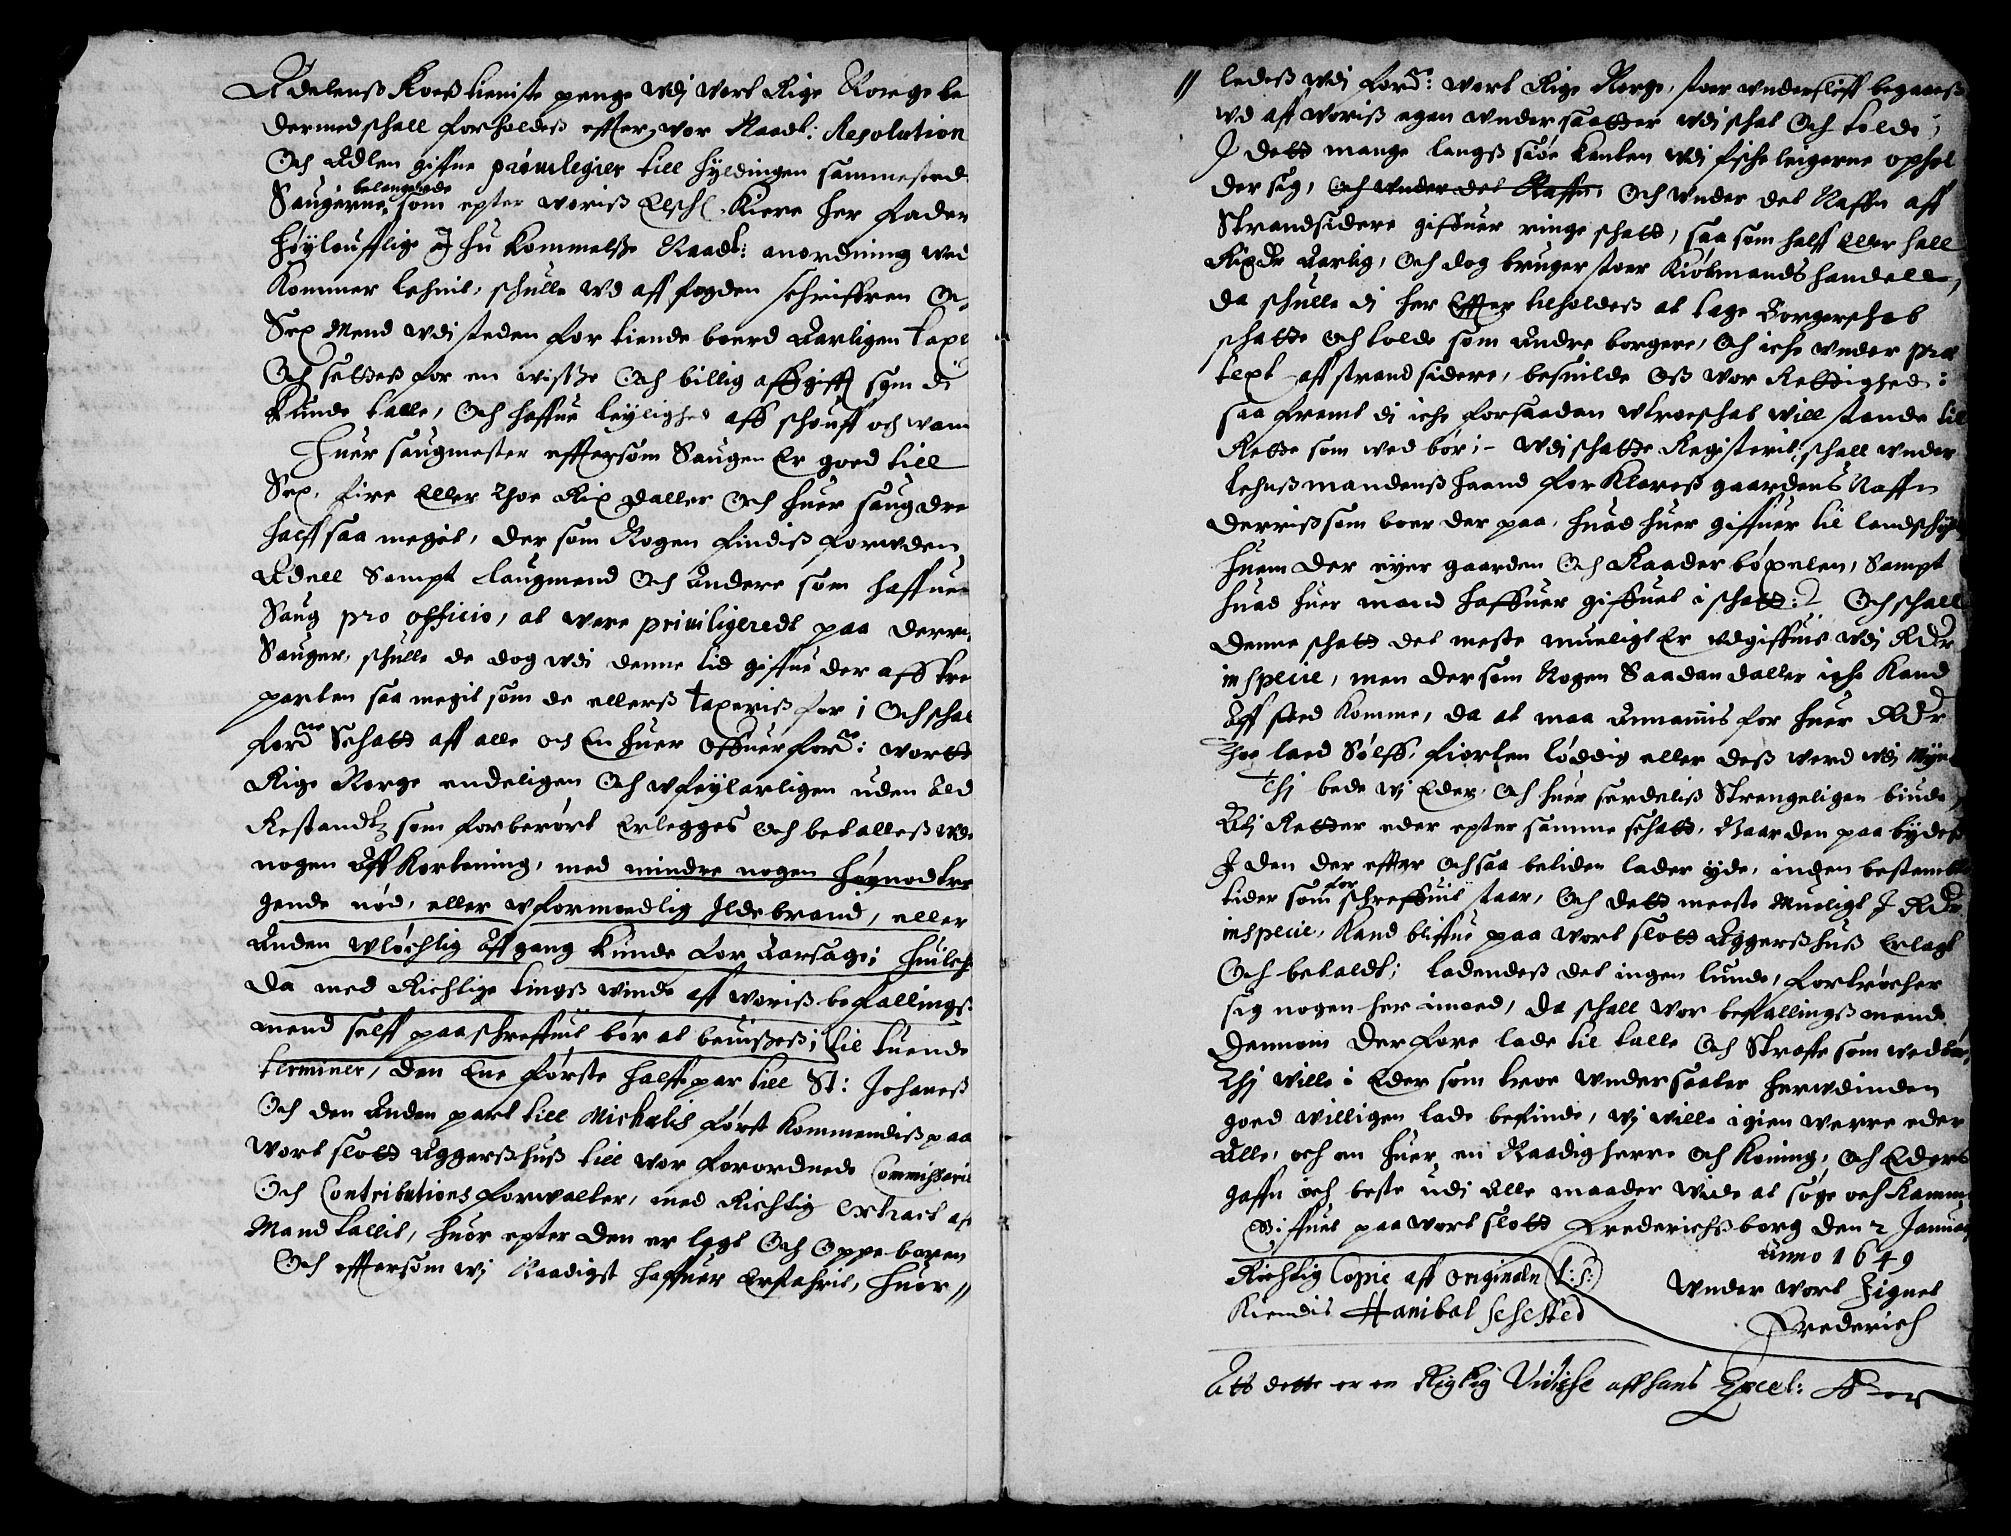 Adelenß Roeß tieniste penge udj vort Rige Norge be
dermed schall forholdeß effter vor Naadl: Resolution
Och Adlen giffne privilegier till hyldingen sammested
Saugerne belangende som epter voriß Elschl. Kiere her Fader
Høyloufflige Ihu Kommelsße Naadl: anordning ved
Kommer lehnit, schulle ud aff fogden schriffren O-
Sex Mend udj steden for tiende boerd Aarligen taxe
Och setteß for en visße Och billig affgifft som di
kunde talle, Och haffue leylighed aff schouff och van
Huer saugmester efftersom Saugen Er goed till
Sex, fire Eller Thoe Rix daller Och huer saugdre
halff saa megit, der som Nogen findiß foruden
Adell Sampt laugmend Och Andere som haffuer
Saug pro officio, at vere priviligeredt paa derri
Sauger, schulle de dog udi denne tid giffue der aff tre
parten saa megit som de ellerß taxeriß for; Och schal
fornne Schatt aff alle och En huer Offuer forne: vortt
Rige Norge endeligen Och ufeylarligen uden Ald
Restandtz som forberørt Erlegges Och betalleß ude
nogen Aff Kortening, med mindre nogen høynodtre
gende nød, eller uformoedlig Ildebrand, eller
Anden uløchlig Affgang kunde for Aarsage; huilchet
da med Richtige tingß vinde aff voriß befallingß
mend self paaschreffuit bør at beuißeß; til tuende
terminer, den Ene første halffpar till St: Johaneß
Och den Anden part till Michaelis først Kommendiß paa
Vort slott Aggerßhuß till vor forordnede Commißari
Och Contributions forvalter, med Richtig extract aff
Mandtallit, huor epter den er lagt Och Oppeboren
Och efftersom vi Naadigst haffuer Erfahrit, huor//
// ledeß udj forne: vort Rige Norge, stoer underslæff begaaeß
ud aff voriß egen undersaatter udj schat Och tolde;
I dett mange langß siøe kanten udj fischeleigerne ophol
der sig, och under det Naffn, Och under det Naffn aff
Strandsidere giffuer ringe schatt, saa som halff Eller hall
Rixdr Aarlig, Och dog bruger stoer Kiøbmandshandell,
da schulle di her Effter tilholdeß at tage Borgerschab
schatte Och tolde som Andre borgere, Och iche under præ
text aff strandsidere, besuilde Oß vor Rettighed:
saa fremt di iche forsaadan utroeschab vill stande til
Rette som ved bør;- Udj schatte Registerit schall under
Lehnßmandenß haand forklareß gaardens Naffn
derriß som boer der paa, huad huer giffuer til landschyld
huem der eyer gaarden Och Raader bøxelen, Sampt
huad huer mand haffuer giffuet i schatt: Och schall
denne schatt det meste mueligt Er udgiffuis udj Rdr
in specie, men dersom Nogen Saadan daller iche kand
Aff sted komme, da at maa Annamis for huer Rdr
Thoe laed Sølff, fiorten løddig eller deß verd udj Mynt
Thj bede vj Eder Och huer serdeliß Strengeligen biude
Atj Retter eder epter samme schatt, Naar den paa bydeß
I den der effter Ochsaa betiden lader yde, inden bestemte
tider som for schreffuit staar, Och dett meeste Mueligt I Rdr
in specie, Kand bliffue paa vort slott Aggerßhuß Erlagt
Och betaldt; ladendeß det ingen lunde, fortrøcher
sig nogen her imoed, da schall vor befallingßmend
dennom derfore lade til talle Och Straffe som vedbør,
Thj ville i Eder som troe undersaater herudinden
goed villigen lade befinde, vj ville igien verre eder
Alle, och en huer, en Naadig herre Och Koning, Och Eders
gaffn och beste udi Alle maader vide at søge och ramme
Giffuet paa vort slott Frederichßborg den 2 Januarij
Anno 1649
Under vort Zignet
Frederich
Richtig Copie aff Originaln (L:S:)
Kiendis Hanibal Sehested
Att dette er en Rigtig Vidisse aff hans Excel: